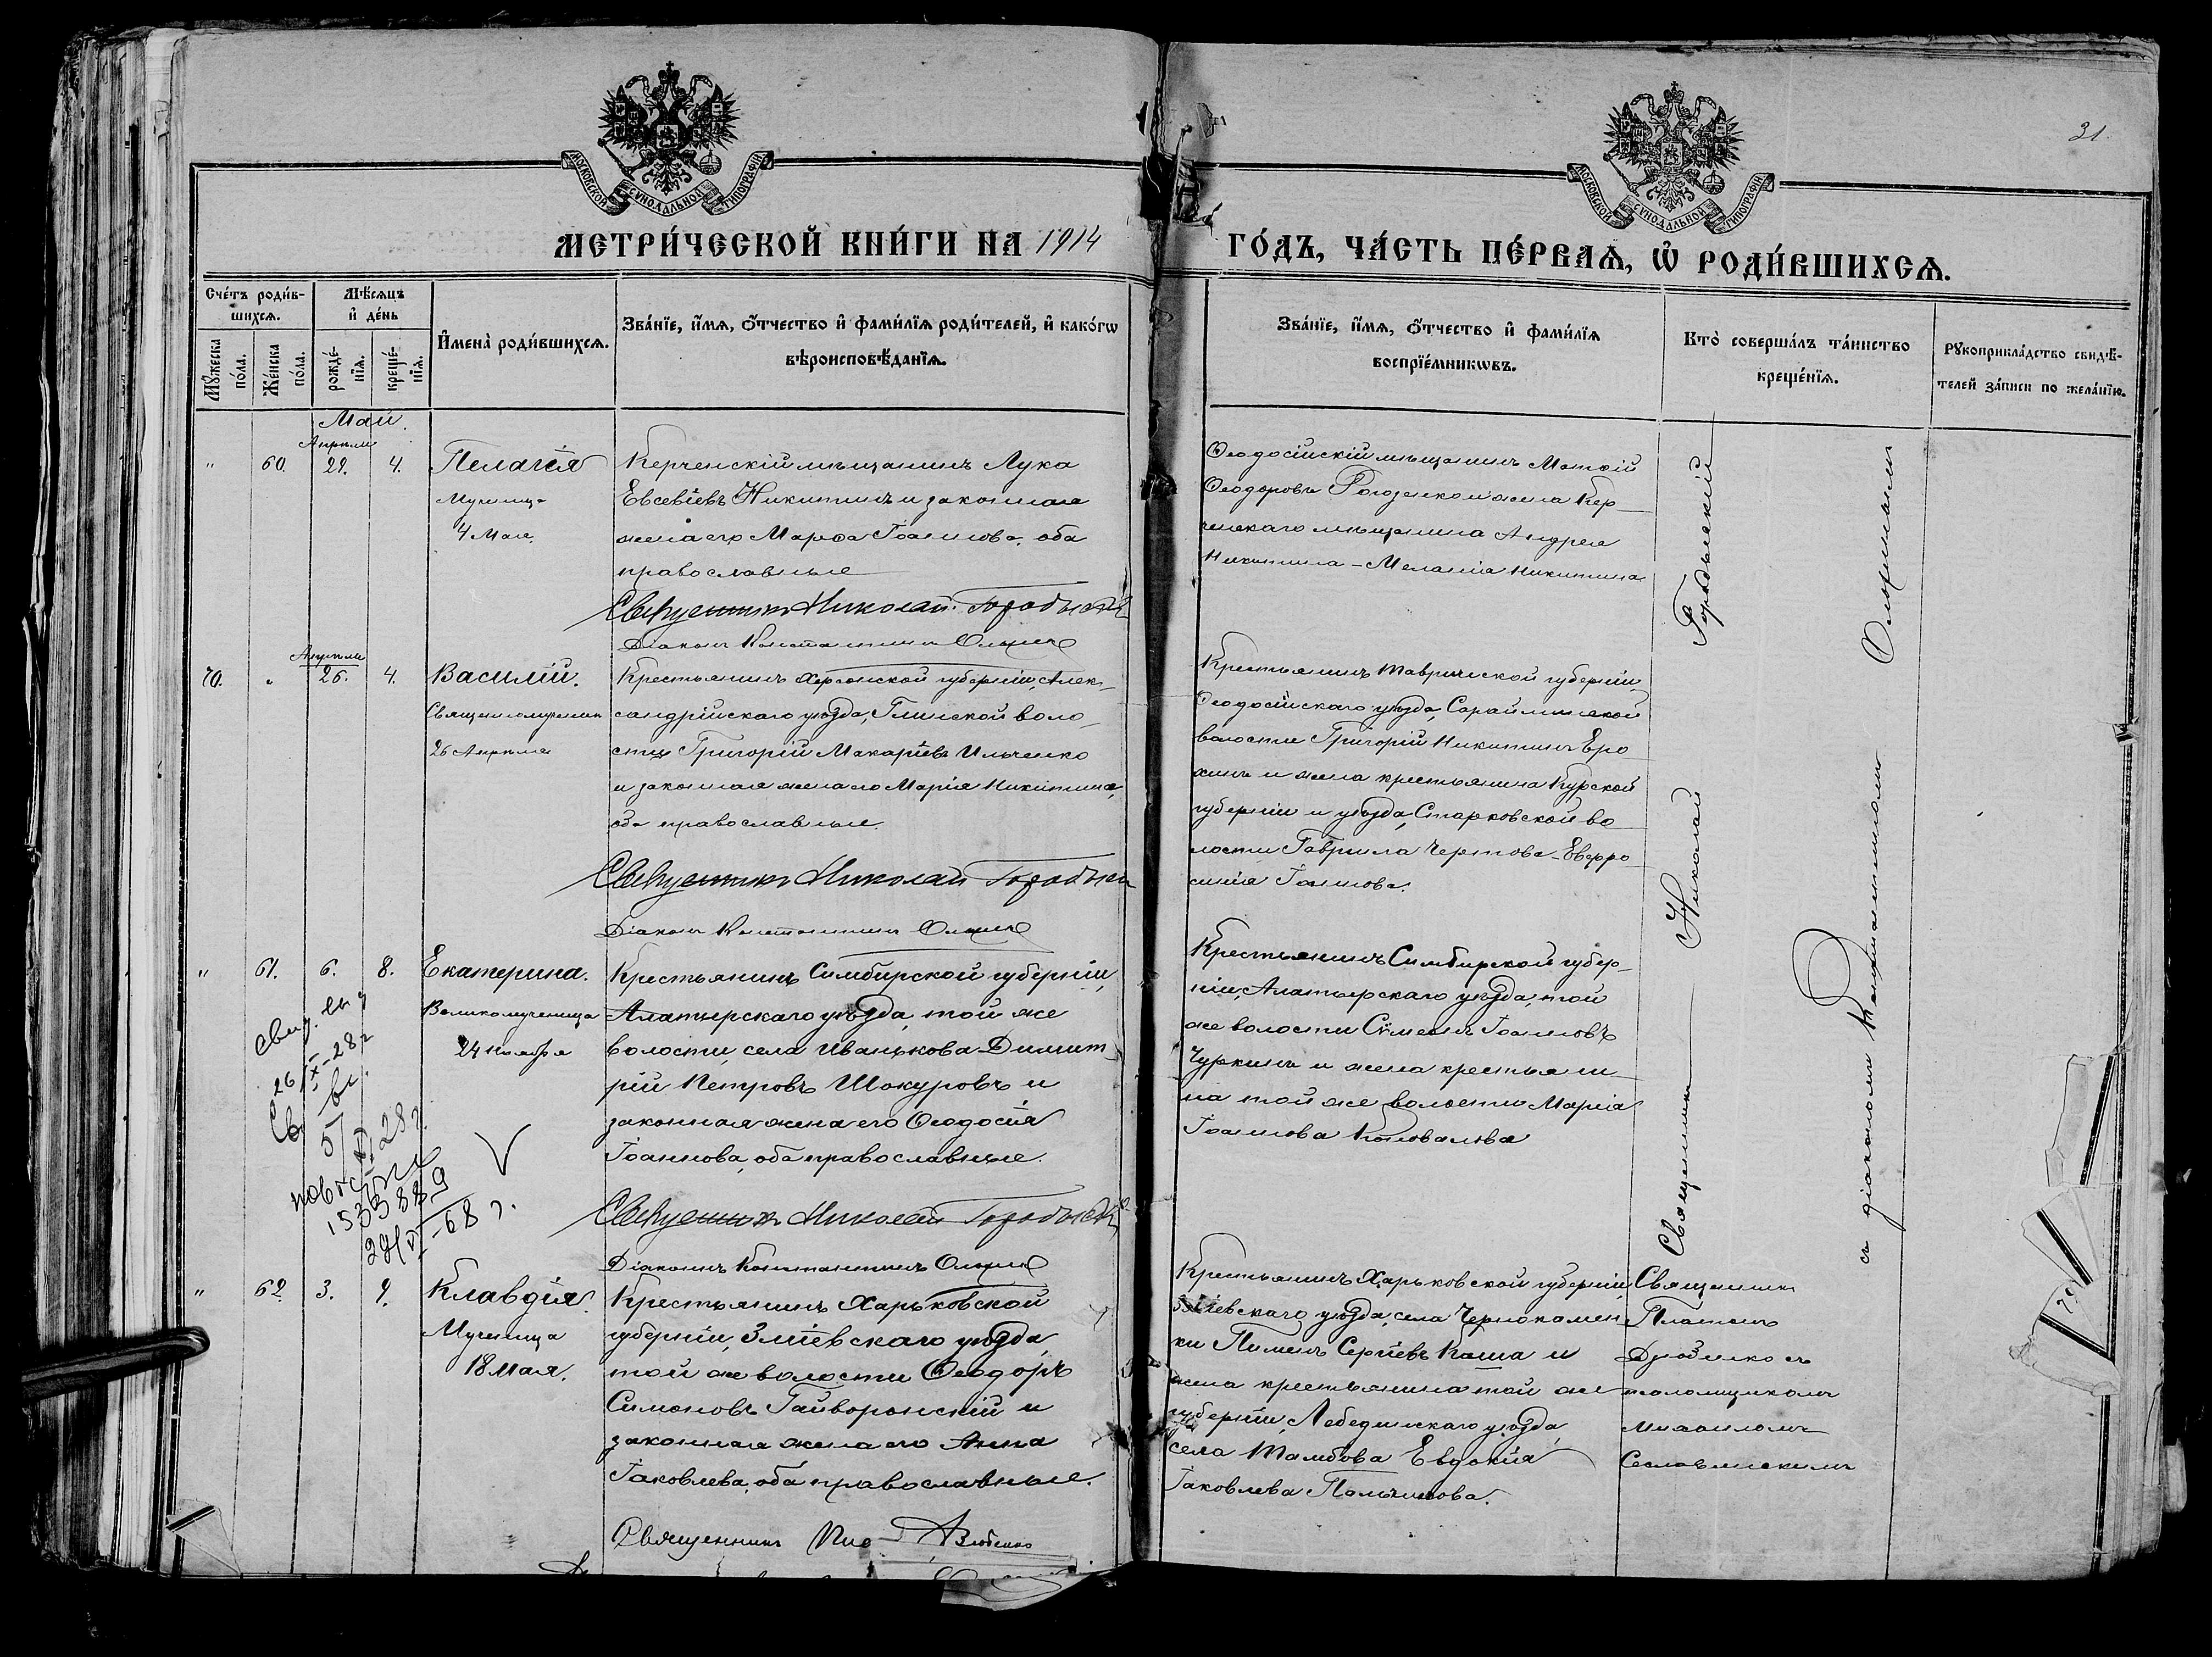 31
МОСКОВСКОЙ СѴНОДАЛЬНОЙ ТИПОГРАФІИ
МОСКОВСКОЙ СѴНОДАЛЬНОЙ ТИПОГРАФІИ
МЕТРИ́ЧЕСКОЙ КНИ́ГИ НА 1914
ГО́ДЪ, ЧА́СТЬ ПЕ́РВАѦ, Ѡ҆ РОДИ́ВШИХСѦ.
Сче́тъ роди́в-
шихсѧ.
Мꙋ́жеска по́ла.
Же́нска по́ла.
Мѣ́сѧцъ
и҆ де́нь
рожде́-нїѧ.
креще́-нїѧ.
И҆мена̀ роди́вшихсѧ.
Зва́нїе, и҆́мѧ, ѻ҆́тчество и҆ фами́лїѧ роди́телей, и҆ како́гѡ
вѣроисповѣ́данїѧ.
Зва́нїе, и҆́мѧ, ѻ҆́тчество и҆ фами́лїѧ
воспрїе́мникѡвъ.
Кто̀ соверша́лъ та́инство
креще́нїѧ.
Рꙋкоприкла́дство свидѣ́-
телей за́писи по жела́нїю.
Май.
Апрѣля
" 60. 29. 4. Пелагія
Мученица
4 Мая.
Керченскій мѣщанинъ Лука
Евсевіевъ Никитинъ и законная
жена его Марѳа Іоаннова, оба
православные
Священникъ Николай Городынскій
Діаконъ Константинъ
Ѳеодосійскій мѣщанинъ Матѳій
Ѳеодоровъ и жена Кер-
ченскаго мѣщанина Андрея
Никитина - Меланія Никитина
Апрѣля
70. " 26. 4. Василій.
Священномученик
26 Апрѣля
Крестьянинъ Херсонской губерніи, Алек-
сандрійскаго уѣзда, Глинской воло-
сти Григорій Макаріевъ Ильченко
и законная жена его Марія Никитина,
оба православные.
Священникъ Николай
Діаконъ Константинъ
Крестьянинъ Таврической губерніи,
Ѳеодосійскаго уѣзда, Сарайминской
волости Григорій Никитинъ Еро-
хинъ и жена крестьянина Курской
губерніи и уѣзда, Старковской во-
лости Гавриила Чертова - Евфро-
синія Іоаннова.
" 61. 6. 8. Екатерина.
Великомученица
24 Ноября
Крестьянинъ Симбирской губерніи,
Алатырскаго уѣзда, той же
волости, села Иванькова - Димит-
рій Петровъ Шокуровъ и
законная жена его Ѳеодосія
Іоаннова, оба православные.
Священникъ Николай Городынскій
Діаконъ Константинъ
Крестьянинъ Симбирской губер-
ніи, Алатырскаго уѣзда, той
же волости Сѵмеонъ Іоанновъ
Чуркинъ и жена крестьяни-
на той же волости Марія
Іоаннова Коновалова
26/IX-28 г
153388
-68 г.
" 62. 3. 9. Клавдія.
Мученица
18 Мая.
Крестьянинъ Харьковской
губерніи, Зміевскаго уѣзда,
той же волости Ѳеодоръ
Симоновъ Гайворонскій и
законная жена его Анна
Іаковлева, оба православные.
Священникъ
Крестьянинъ Харьковской губерніи,
Зміевскаго уѣзда, села Чернокамен-
ки Пименъ Сергіевъ Каша и
жена крестьянина той же
губерніи, Лебединскаго уѣзда,
села Тамбова Евдокія
Іаковлева Пальчикова.
Священникъ
Платонъ
Дзюбенко съ
псаломщикомъ
Михаиломъ
Сеславинскимъ
Священникъ Николай Городынскій
съ діакономъ Константиномъ